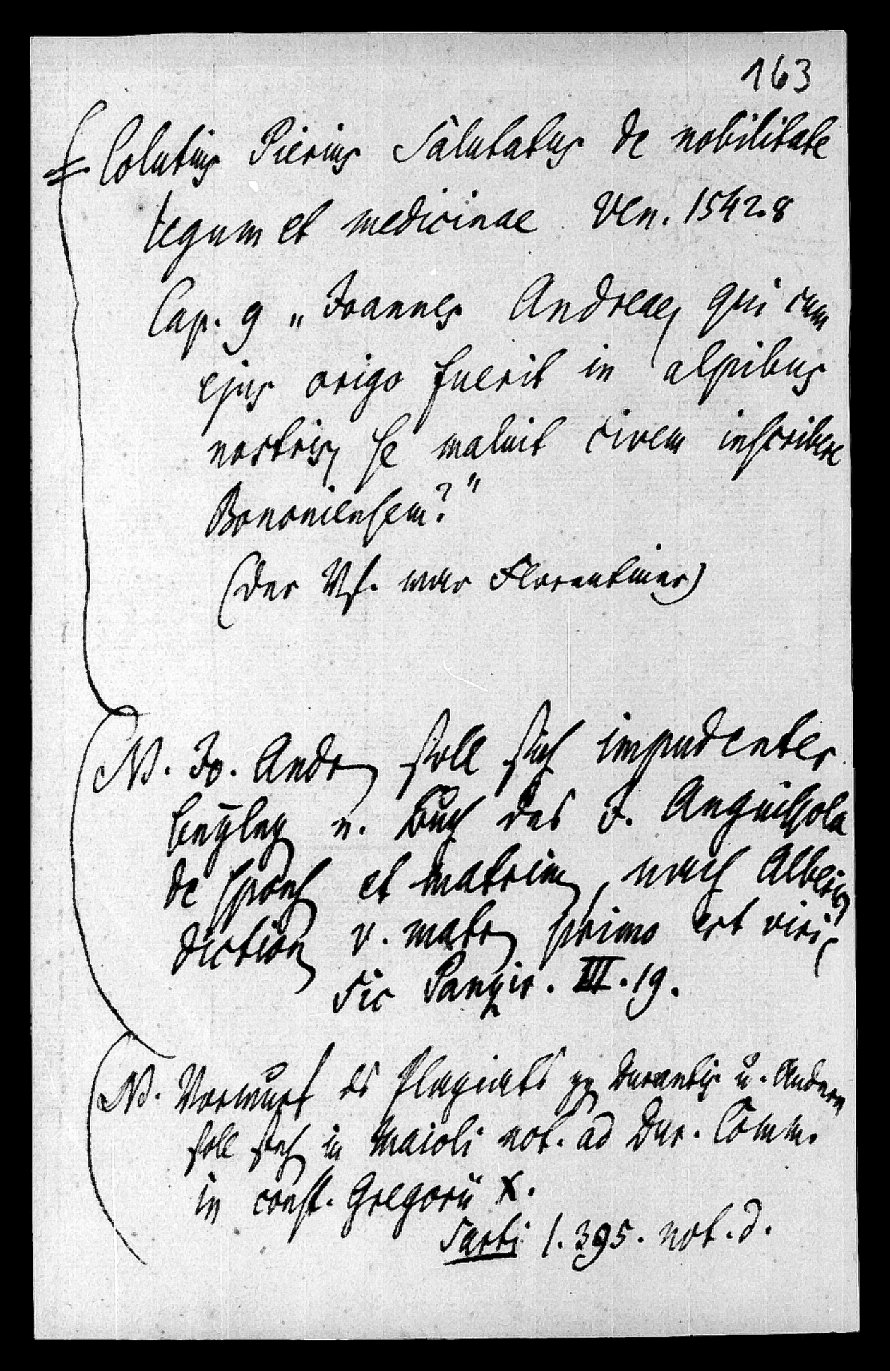 163
Colutius Pierius Salutatus de nobilitate
legum et medicinae Ven. 1542. 8
Cap. 9 „Joannes Andreae, qui cum
ejus origo fuerit in alpibus
nostris, se maluit civem inscribere
Bononiensem?"
(der Vf. war Florentiner)
N. Jo. Andr. soll sich impudenter
beylegen d. Buch des J. Anguissola
de spons. et matrim., nach Alberic.
diction. v. matr. primo est viri
Sic Panzir. III. 19.
N. Vorwurf des Plagiats gg Durantis u. Andere
soll stehn in Maioli not. ad Dur. Comm.
in const. Gregorii X.
Sarti 1. 395. not. d.